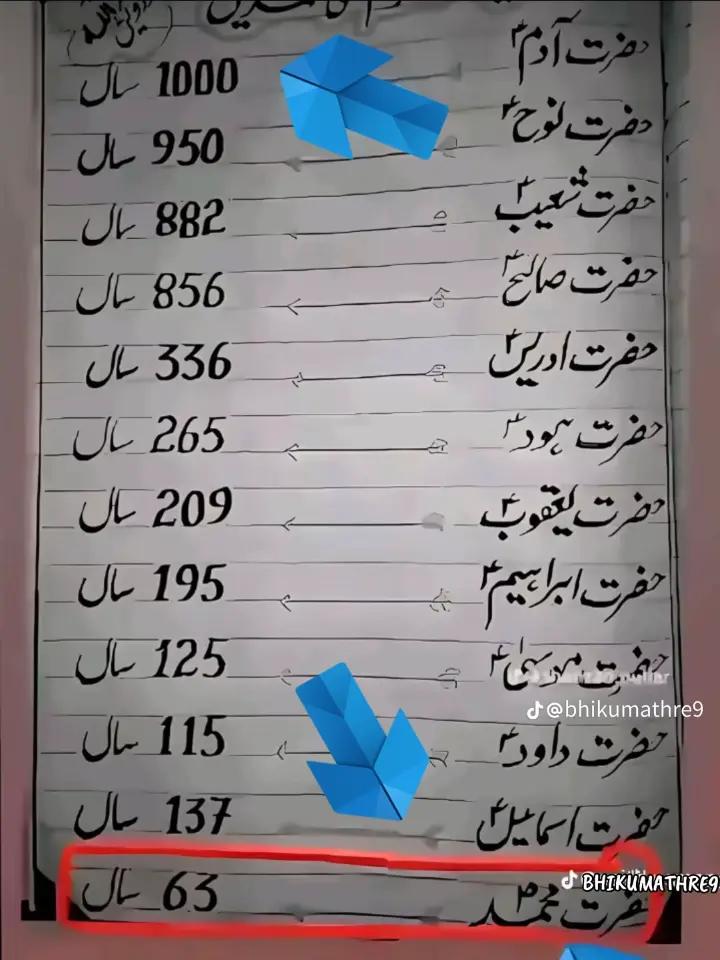 حضرت آدمؑ 1000 سال
حضرت نوحؑ 950 سال
حضرت شعیبؑ 882 سال
حضرت صالحؑ 856 سال
حضرت ادریسؑ 336 سال
حضرت ہودؑ 265 سال
حضرت یعقوبؑ 209 سال
حضرت ابراہیمؑ 195 سال
حضرت موسیٰؑ 125 سال
@bhikumathre9
حضرت داودؑ 115 سال
حضرت اسماعیلؑ 137 سال
BHIKUMATHRE9
حضرت محمدؐ 63 سال